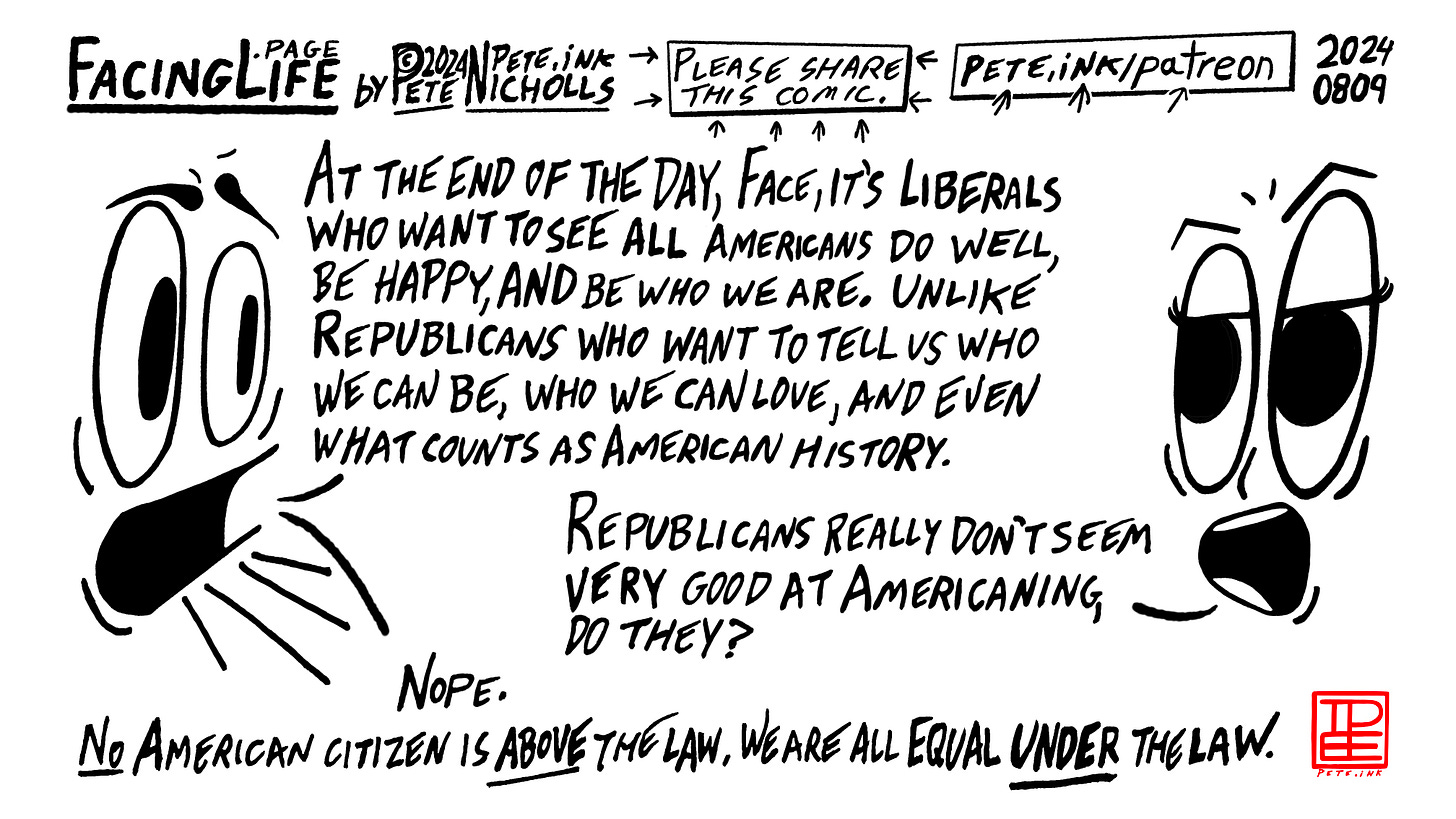 FACINGLIFE.PAGE
by ©2024 PETE NICHOLLS PETE.iNK
PLEASE SHARE
THIS COMIC.
PETE.iNK/patreon
2024
0809
AT THE END OF THE DAY, FACE, IT'S LIBERALS
WHO WANT TO SEE ALL AMERICANS DO WELL,
BE HAPPY, AND BE WHO WE ARE. UNLIKE
REPUBLICANS WHO WANT TO TELL US WHO
WE CAN BE, WHO WE CAN LOVE, AND EVEN
WHAT COUNTS AS AMERICAN HISTORY.
REPUBLICANS REALLY DON'T SEEM
VERY GOOD AT AMERICANING,
DO THEY?
NOPE.
NO AMERICAN CITIZEN IS ABOVE THE LAW. WE ARE ALL EQUAL UNDER THE LAW.
PETE.iNK